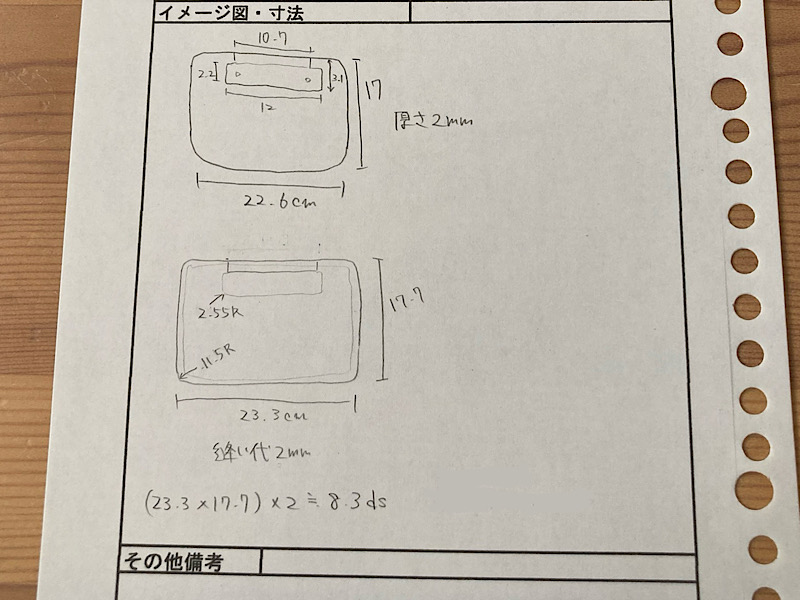 イメージ図・寸法
10.7
2.2
3.1
12
17
厚さ2mm
22.6cm
2.55R
11.5R
17.7
23.3cm
縫い代2mm
(23.3×17.7)×2≒8.3ds
その他備考